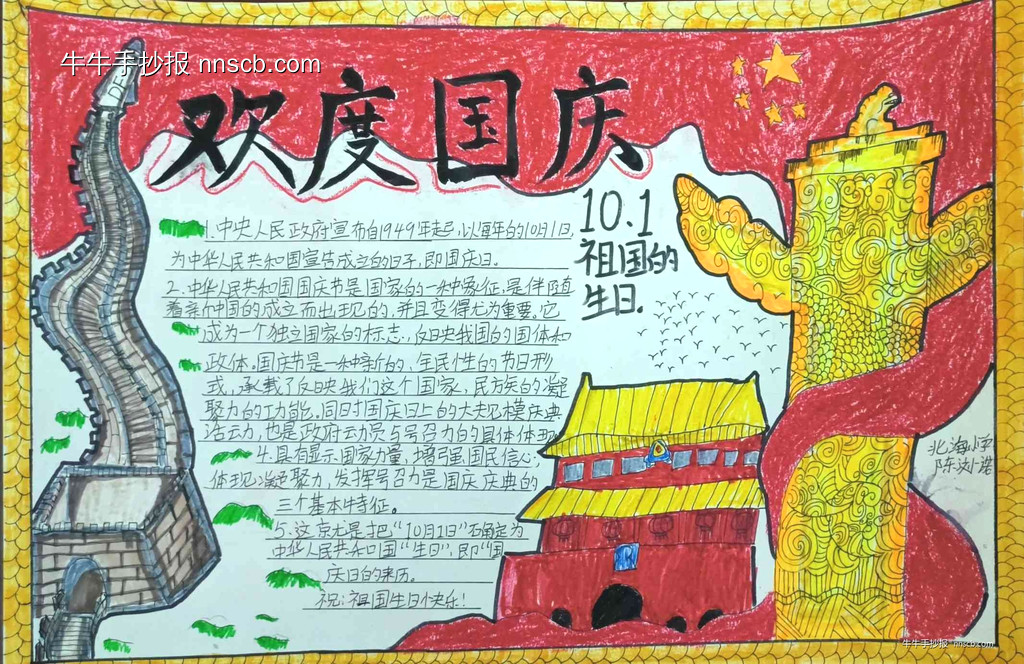 牛牛手抄报 nnscb.com
欢度国庆
10.1
祖国的
生日.
1.中央人民政府宣布自1949年起,以每年的10月1日,
为中华人民共和国宣告成立的日子,即国庆日。
2.中华人民共和国国庆节是国家的一种象征,是伴随
着新中国的成立而出现的,并且变得尤为重要。它
成为一个独立国家的标志,反映我国的国体和
政体。国庆节是一种新的、全民性的节日形
式,承载了反映我们这个国家,民族的凝
聚力的功能。同时国庆日上的大规模庆典
活动,也是政府动员与号召力的具体体现
4.具有显示国家力量,增强国民信心,
体现凝聚力,发挥号召力是国庆庆典的
三个基本特征。
5.这就是把“10月1日”确定为
中华人民共和国“生日”,即“国
庆日的来历。
祝:祖国生日快乐!
北海
陈
牛牛手抄报 nnscb.com